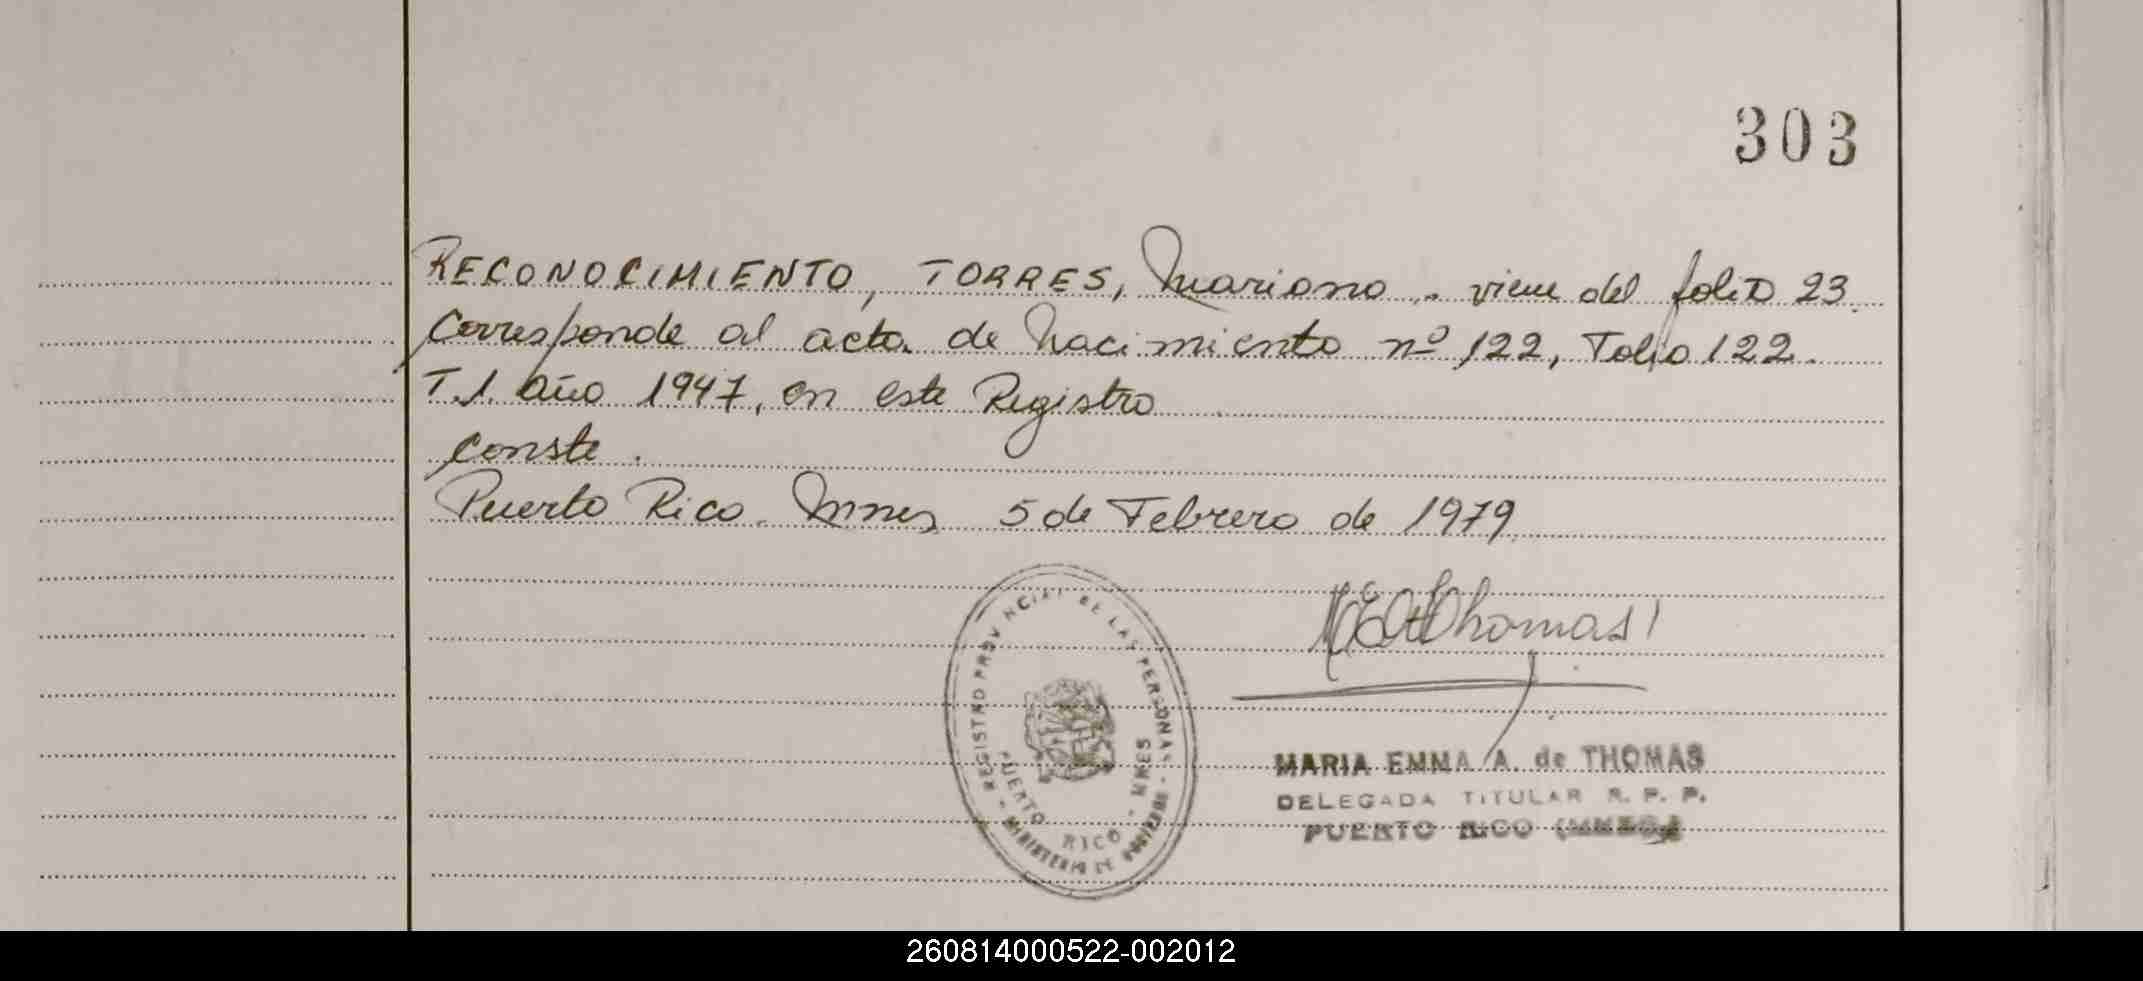 303
RECONOCIMIENTO, TORRES, Mariano.. viene del folio 23.
Corresponde al acta de Nacimiento nº 122, Folio 122.
T.1. Año 1947, en este Registro
Conste.
Puerto Rico. Mnes 5 de Febrero de 1979
MEAThomas
REGISTRO PROVINCIAL DE LAS PERSONAS - MINISTERIO DE GOBIERNO -
PUERTO RICO - MNES
MARIA EMMA A. de THOMAS
DELEGADA TITULAR R. P. P.
PUERTO RICO (MNES)
260814000522-002012